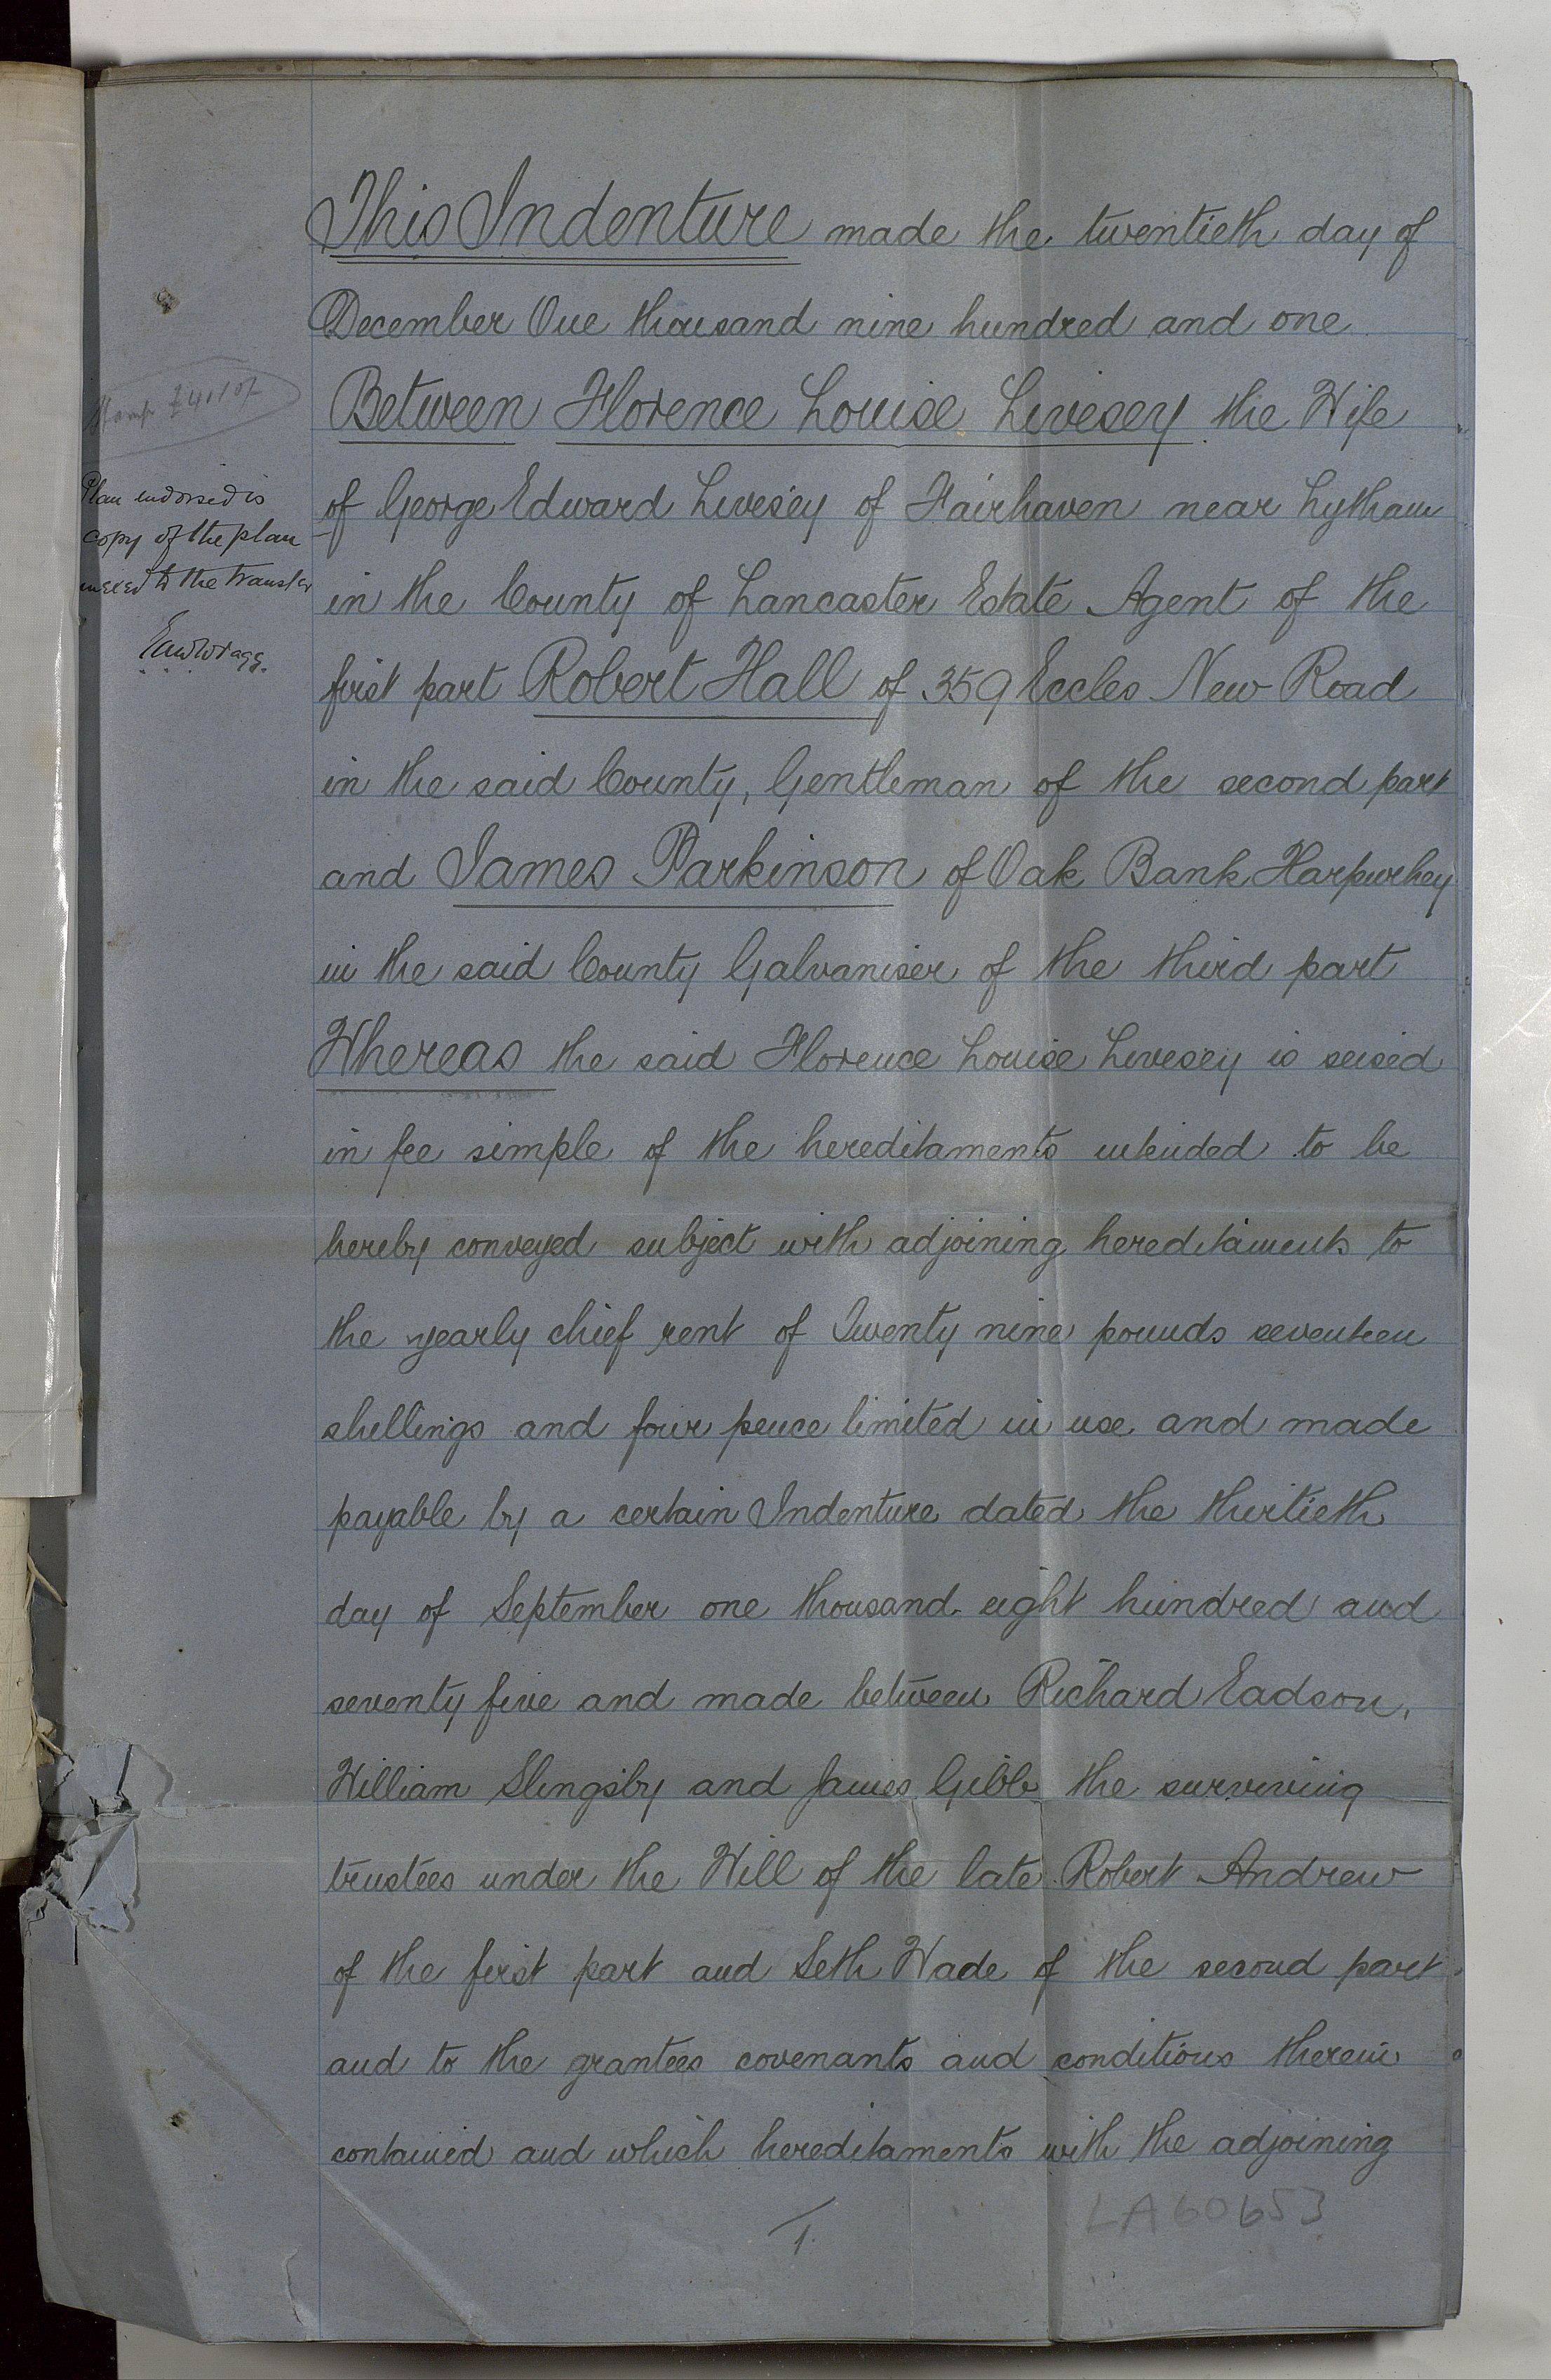 This Indenture made the twentieth day of
December One thousand nine hundred and one
Between Florence Louise Livesey the Wife
of George Edward Livesey of Fairhaven near Lytham
in the County of Lancaster Estate Agent of the
first part Robert Hall of 359 Eccles New Road
in the said County, Gentleman of the second part
and James Parkinson of Oak Bank Harpurhey
in the said County Galvaniser of the third part
Whereas the said Florence Louise Livesey is seised
in fee simple of the hereditaments intended to be
hereby conveyed subject with adjoining hereditaments to
the yearly chief rent of Twenty nine pounds seventeen
shillings and four pence limited in use and made
payable by a certain Indenture dated the thirtieth
day of September one thousand eight hundred and
seventy five and made between Richard Eadson,
William Slingsby and James Gibb the surviving
trustees under the Will of the late Robert Andrew
of the first part and Seth Wade of the second part
and to the grantees covenants and conditions therein
contained and which hereditaments with the adjoining
1.
LA60653
Stamp
Plan endorsed is
copy of the plan
to the transfer